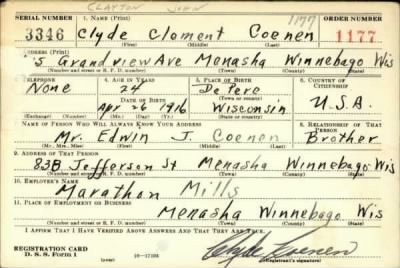 CLAYTON JOHN
SERIAL NUMBER 1. NAME (Print) 1177 ORDER NUMBER
3346 Clyde Clement Coenen 1177
(First) (Middle) (Last)
ADDRESS (Print)
5 Grandview Ave Menasha Winnebago Wis
(Number and street or R. F. D. number) (Town) (County) (State)
TELEPHONE 4. AGE IN YEARS 5. PLACE OF BIRTH 6. COUNTRY OF CITIZENSHIP
None 24 De Pere
DATE OF BIRTH (Town or county)
Apr 26 1916 Wisconsin U.S.A.
(Exchange) (Number) (Mo.) (Day) (Yr.) (State or country)
NAME OF PERSON WHO WILL ALWAYS KNOW YOUR ADDRESS 8. RELATIONSHIP OF THAT PERSON
Mr. Edwin J. Coenen Brother
(Mr., Mrs., Miss) (First) (Middle) (Last)
9. ADDRESS OF THAT PERSON
838 Jefferson St Menasha Winnebago Wis
(Number and street or R. F. D. number) (Town) (County) (State)
10. EMPLOYER'S NAME
Marathon Mills
11. PLACE OF EMPLOYMENT OR BUSINESS
Menasha Winnebago Wis
(Number and street or R. F. D. number) (Town) (County) (State)
I AFFIRM THAT I HAVE VERIFIED ABOVE ANSWERS AND THAT THEY ARE TRUE.
REGISTRATION CARD
D. S. S. Form 1 (over) 16-17105 Clyde Coenen
(Registrant's signature)